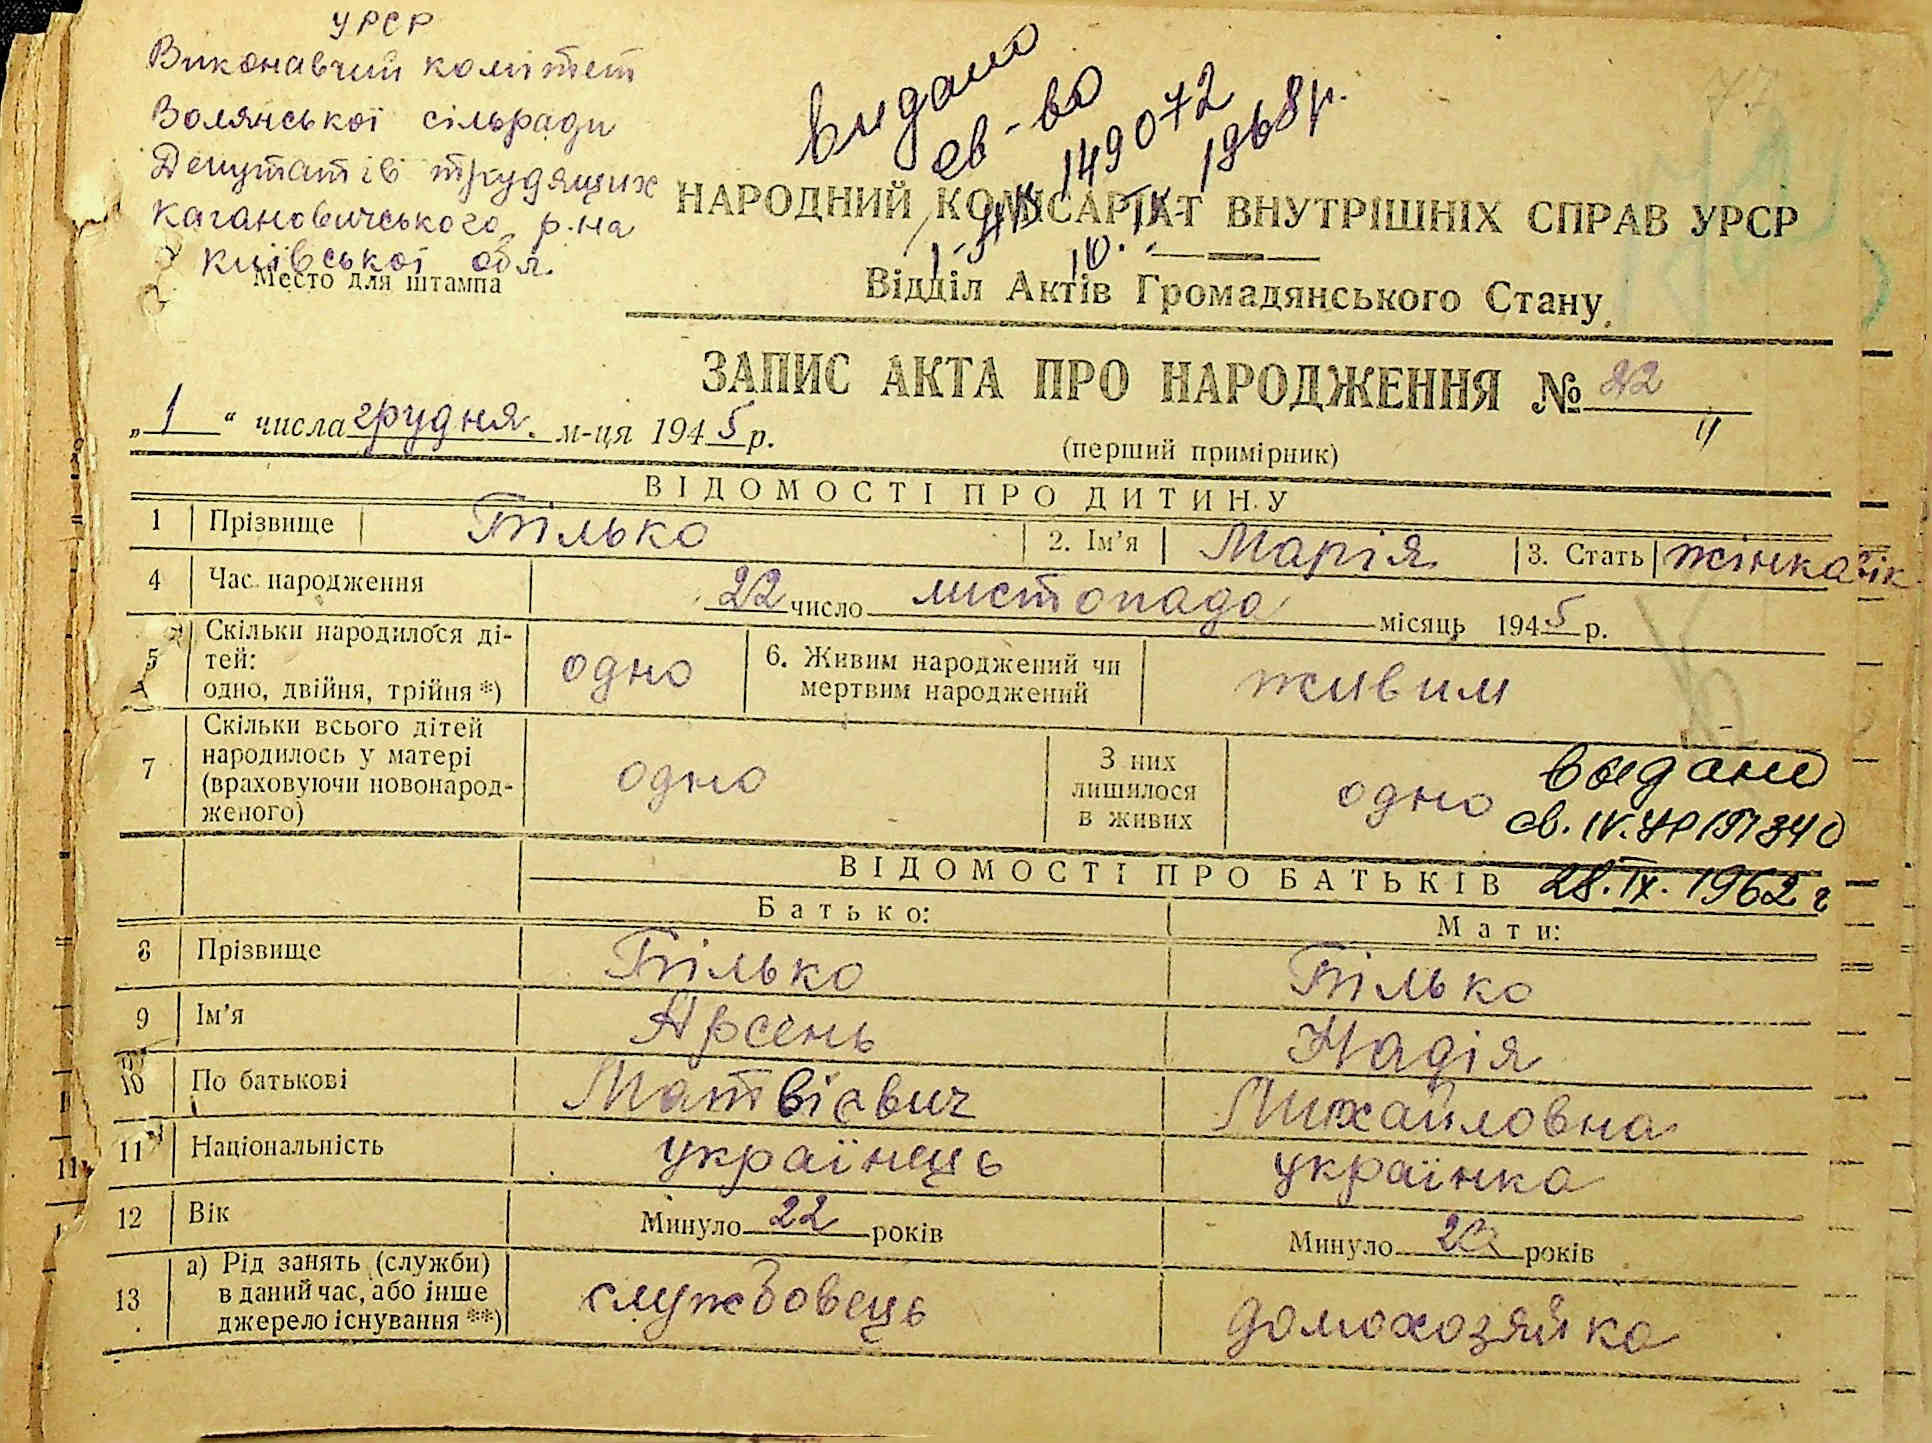 УРСР
Виконавчий комітет
Волянської сільради
Депутатів трудящих
Кагановичського р-на
Київської обл.
Место для штампа
видано
св-во
149072
1968р.
НАРОДНИЙ КОМІСАРІАТ ВНУТРІШНІХ СПРАВ УРСР
Відділ Актів Громадянського Стану
ЗАПИС АКТА ПРО НАРОДЖЕННЯ № 22
„ 1 “ числа грудня м-ця 1945 р.
(перший примірник)
ВІДОМОСТІ ПРО ДИТИНУ
1 Прізвище Тілько 2. Ім’я Марія 3. Стать жінка
4 Час народження 22 число листопада місяць 1945 р.
5 Скільки народилося ді-
тей:
одно, двійня, трійня *) одно 6. Живим народжений чи
мертвим народжений живим
7 Скільки всього дітей
народилось у матері
(враховуючи новонарод-
женого) одно З них
лишилося
в живих одно
видано
св. IV.
28.IX.1962 г
ВІДОМОСТІ ПРО БАТЬКІВ
Батько: Мати:
8 Прізвище Тілько Тілько
9 Ім’я Арсень Надія
10 По батькові Матвієвич Михайловна
11 Національність українець українка
12 Вік Минуло 22 років Минуло років
13 а) Рід занять (служби)
в даний час, або інше
джерело існування **) службовець домохозяйка